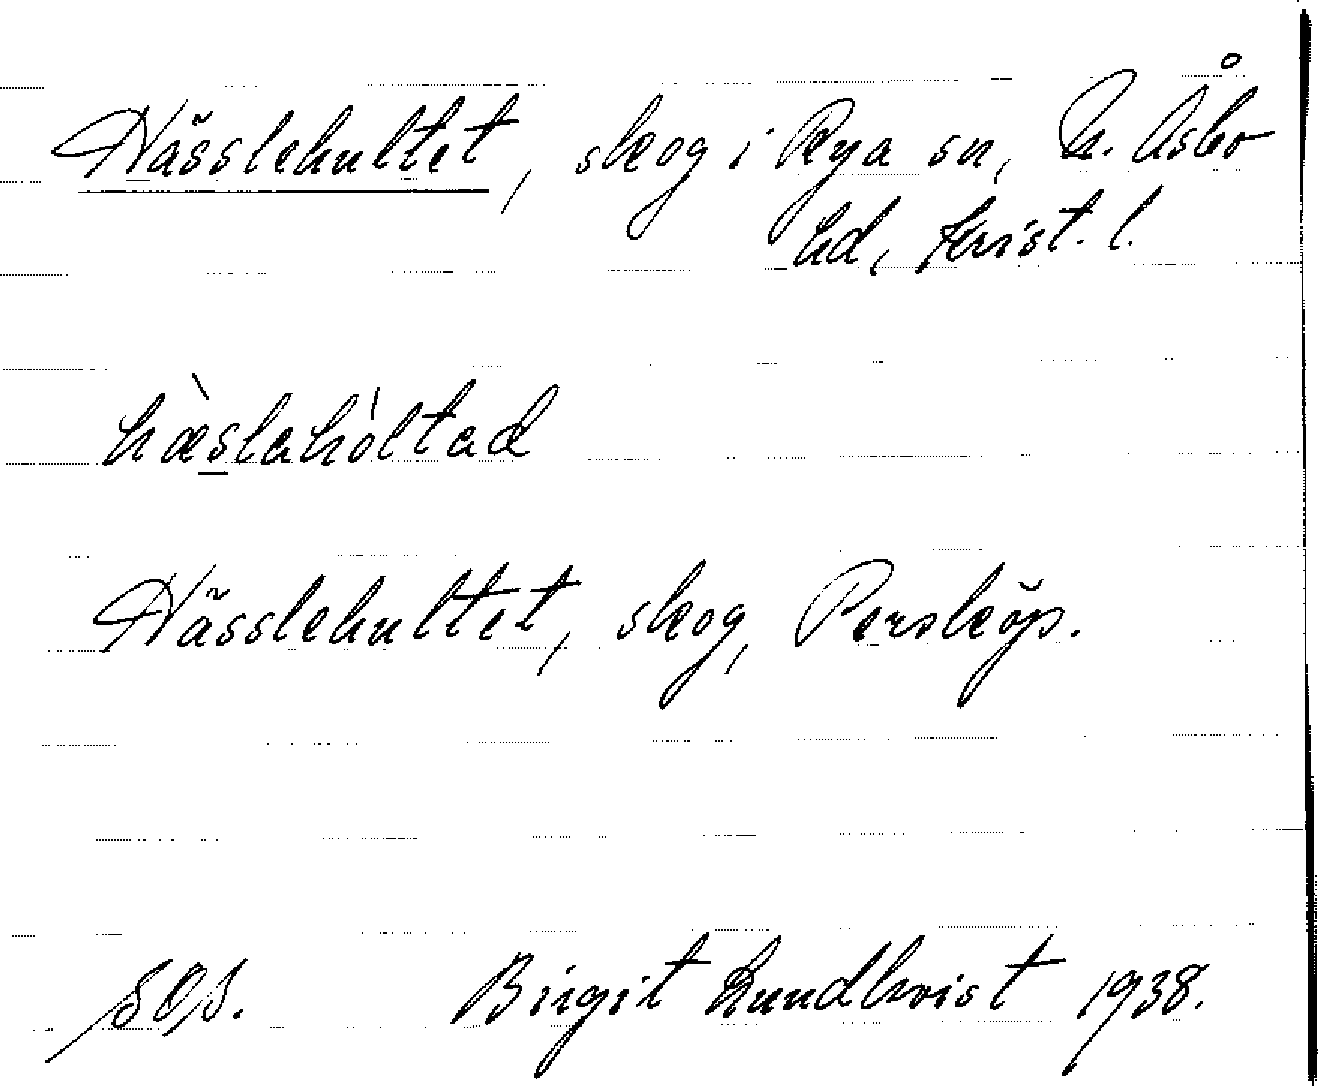 Hässlehultet, skog i Rya sn, N. Åsbo
hd, Krist. l.
hæ̀slahóltad
Hässlehultet, skog, Persköp.
SOS. Birgit Lundkvist 1938.